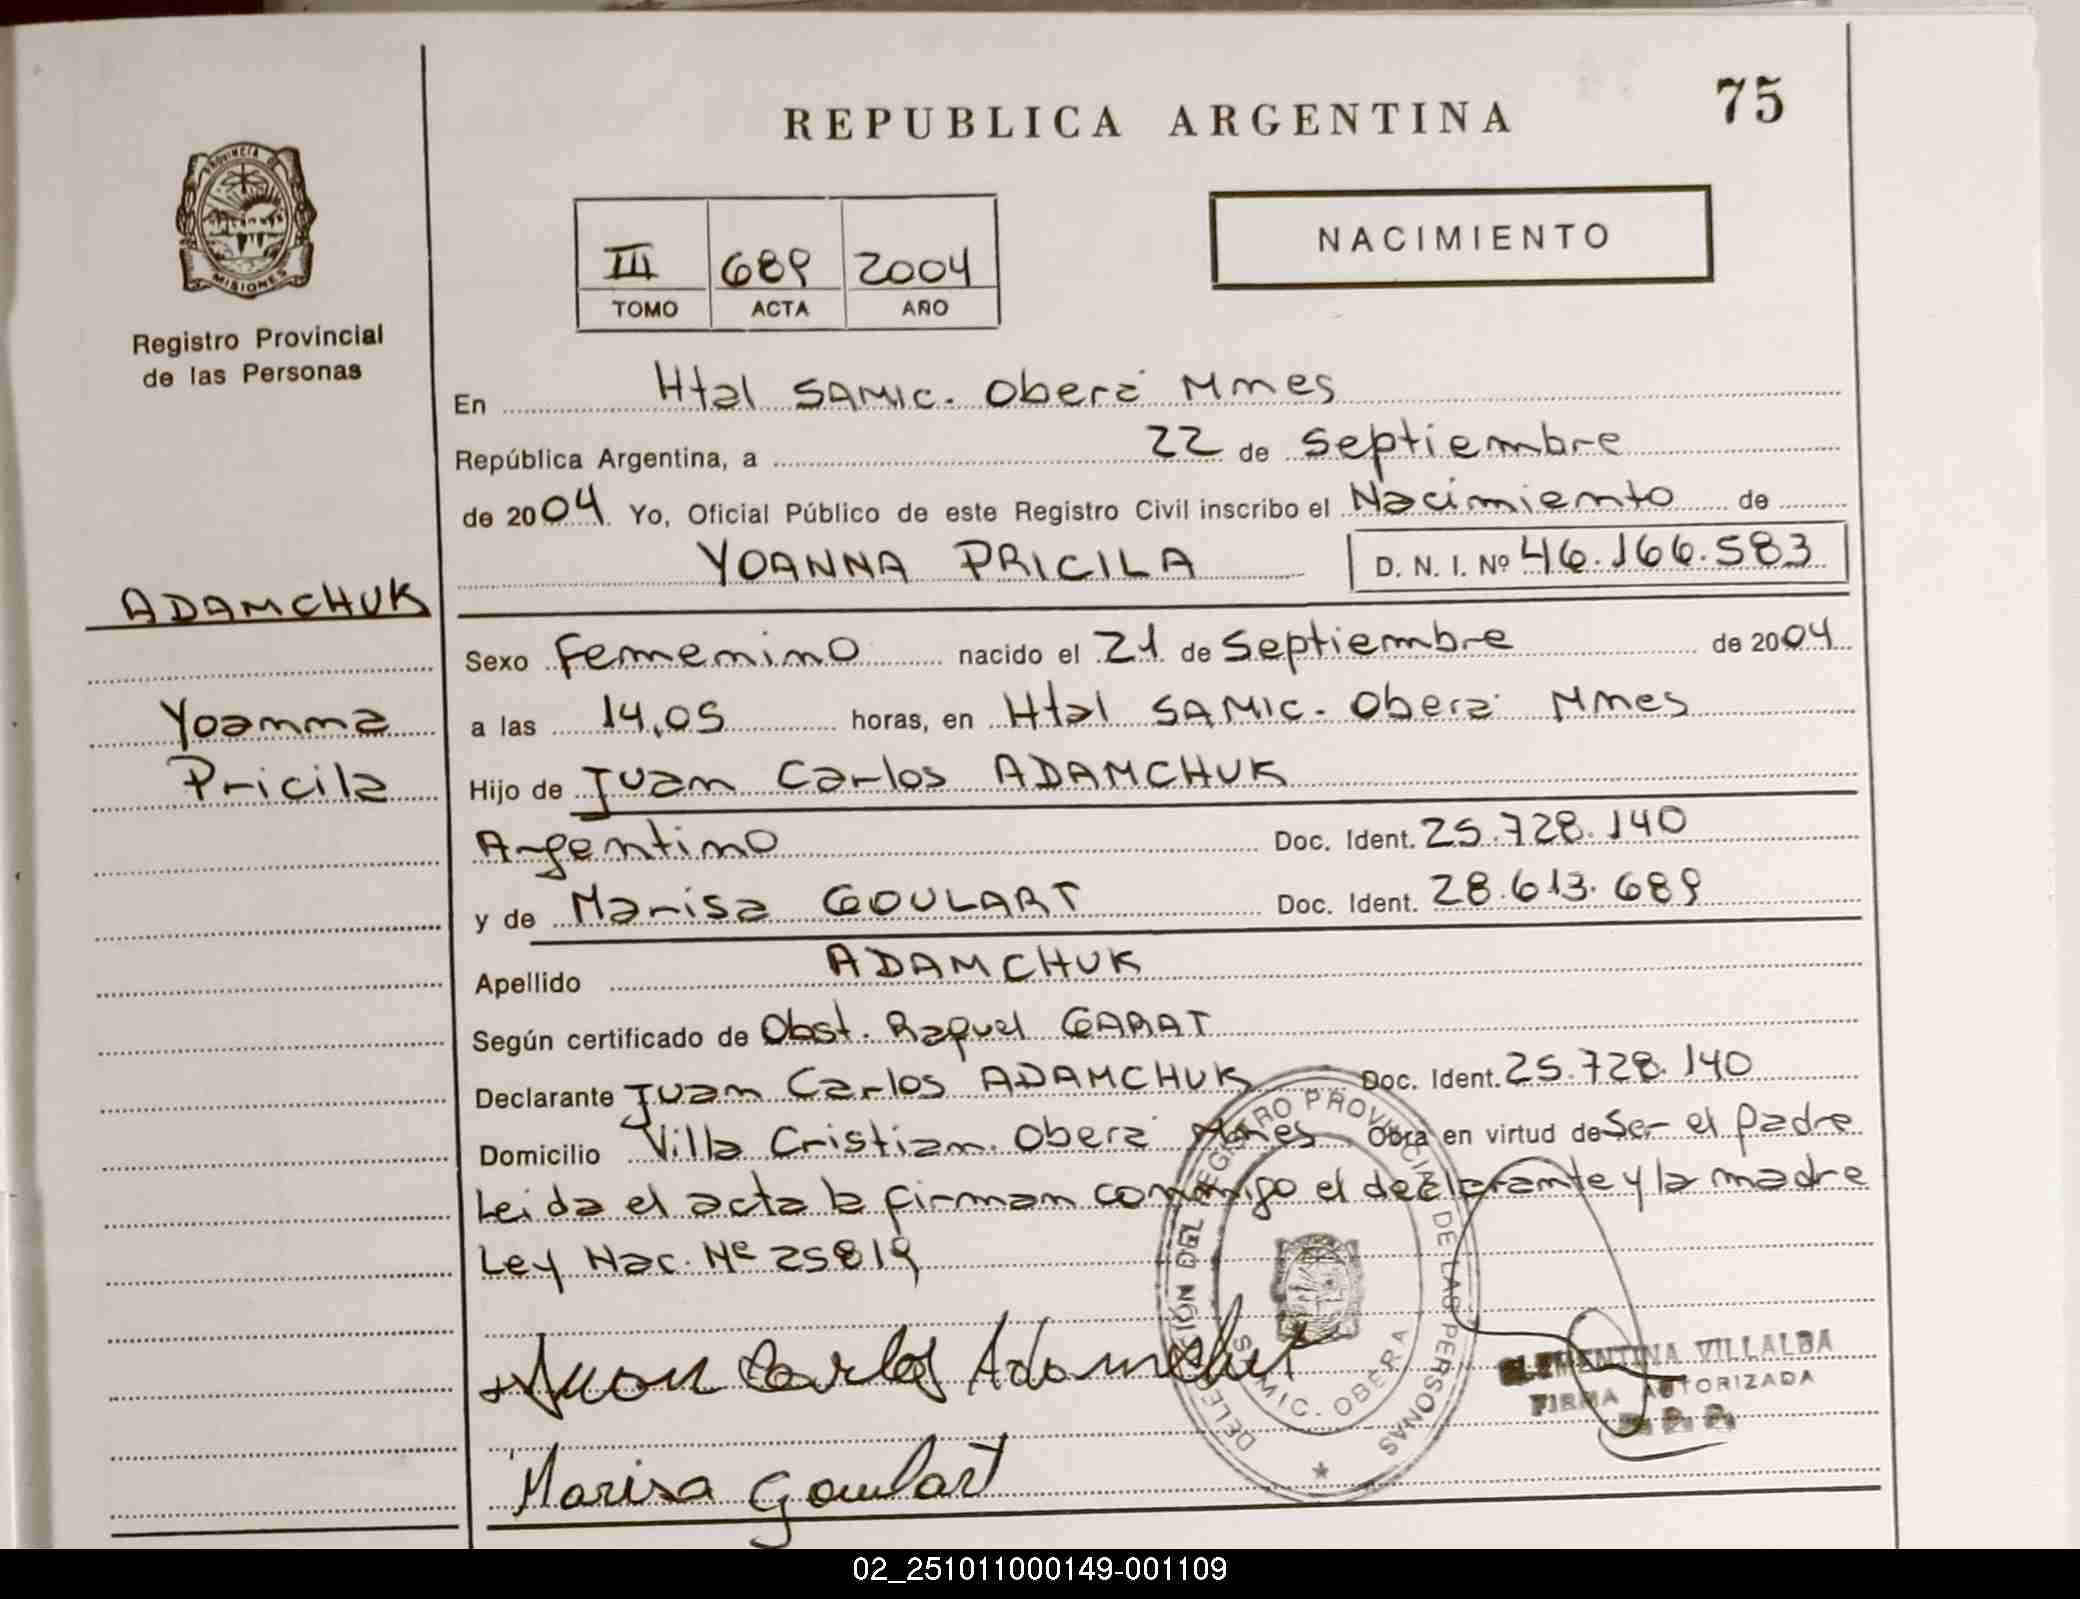 REPUBLICA ARGENTINA
75
PROVINCIA DE
MISIONES
Registro Provincial
de las Personas
III 689 2004
TOMO ACTA AÑO
NACIMIENTO
En Htal SAMIC. Oberá Mnes
República Argentina, a 22 de Septiembre
de 2004 Yo, Oficial Público de este Registro Civil inscribo el Nacimiento de
YOANNA PRICILA D. N. I. Nº 46.166.583
ADAMCHUK
Yoanna
Pricila
Sexo Femenino nacido el 21 de Septiembre de 2004
a las 14,05 horas, en Htal SAMIC. Oberá Mnes
Hijo de Juan Carlos ADAMCHUK
Argentino Doc. Ident. 25.728.140
y de Marisa GOULART Doc. Ident. 28.613.689
Apellido ADAMCHUK
Según certificado de Obst. Raquel GARAT
Declarante Juan Carlos ADAMCHUK Doc. Ident. 25.728.140
Domicilio Villa Cristian. Oberá Mnes Obra en virtud de Ser el padre
Leida el acta la firman conmigo el declarante y la madre
Ley Nac. Nº 25819
Juan Carlos Adamchuk
Marisa Goulart
DELEGACIÓN DEL REGISTRO PROVINCIAL DE LAS PERSONAS
SAMIC. OBERA
CLEMENTINA VILLALBA
FIRMA AUTORIZADA
R. P. P.
02_251011000149-001109